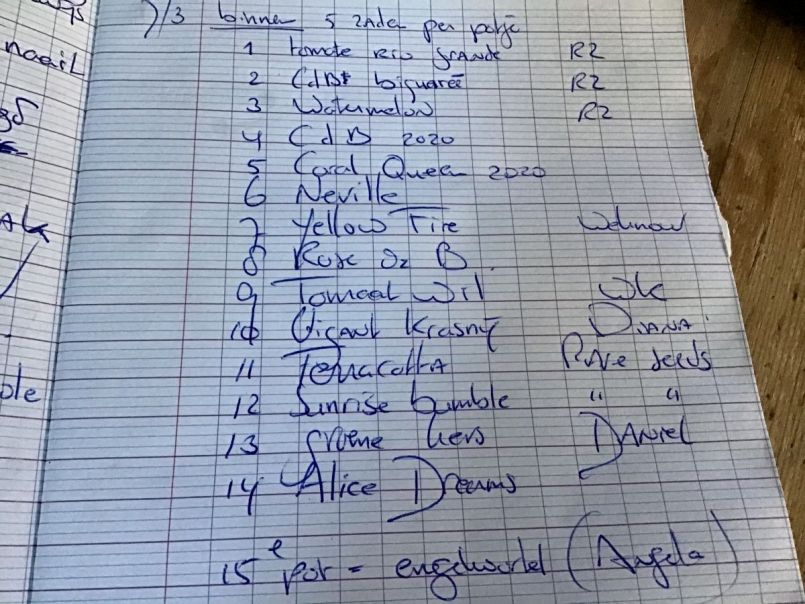 naail
ple
7/3 binnen 5 zaden per potje
1 tomate rio grande R2
2 CdB bigarrée R2
3 Watermelon R2
4 CdB 2020
5 Coral Queen 2020
6 Neville
7 Yellow Fire
8 Rose de B
9 Tomaat Wil
10 Gigant Krasny DIANA
11 Terracotta Rare seeds
12 Sunrise bumble " "
13 groene kers DANIEL
14 Alice Dreams
15e pot = engelwortel (Angela)